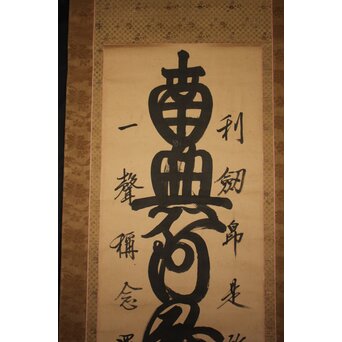 利劔即是
南無阿
一聲稱念罪